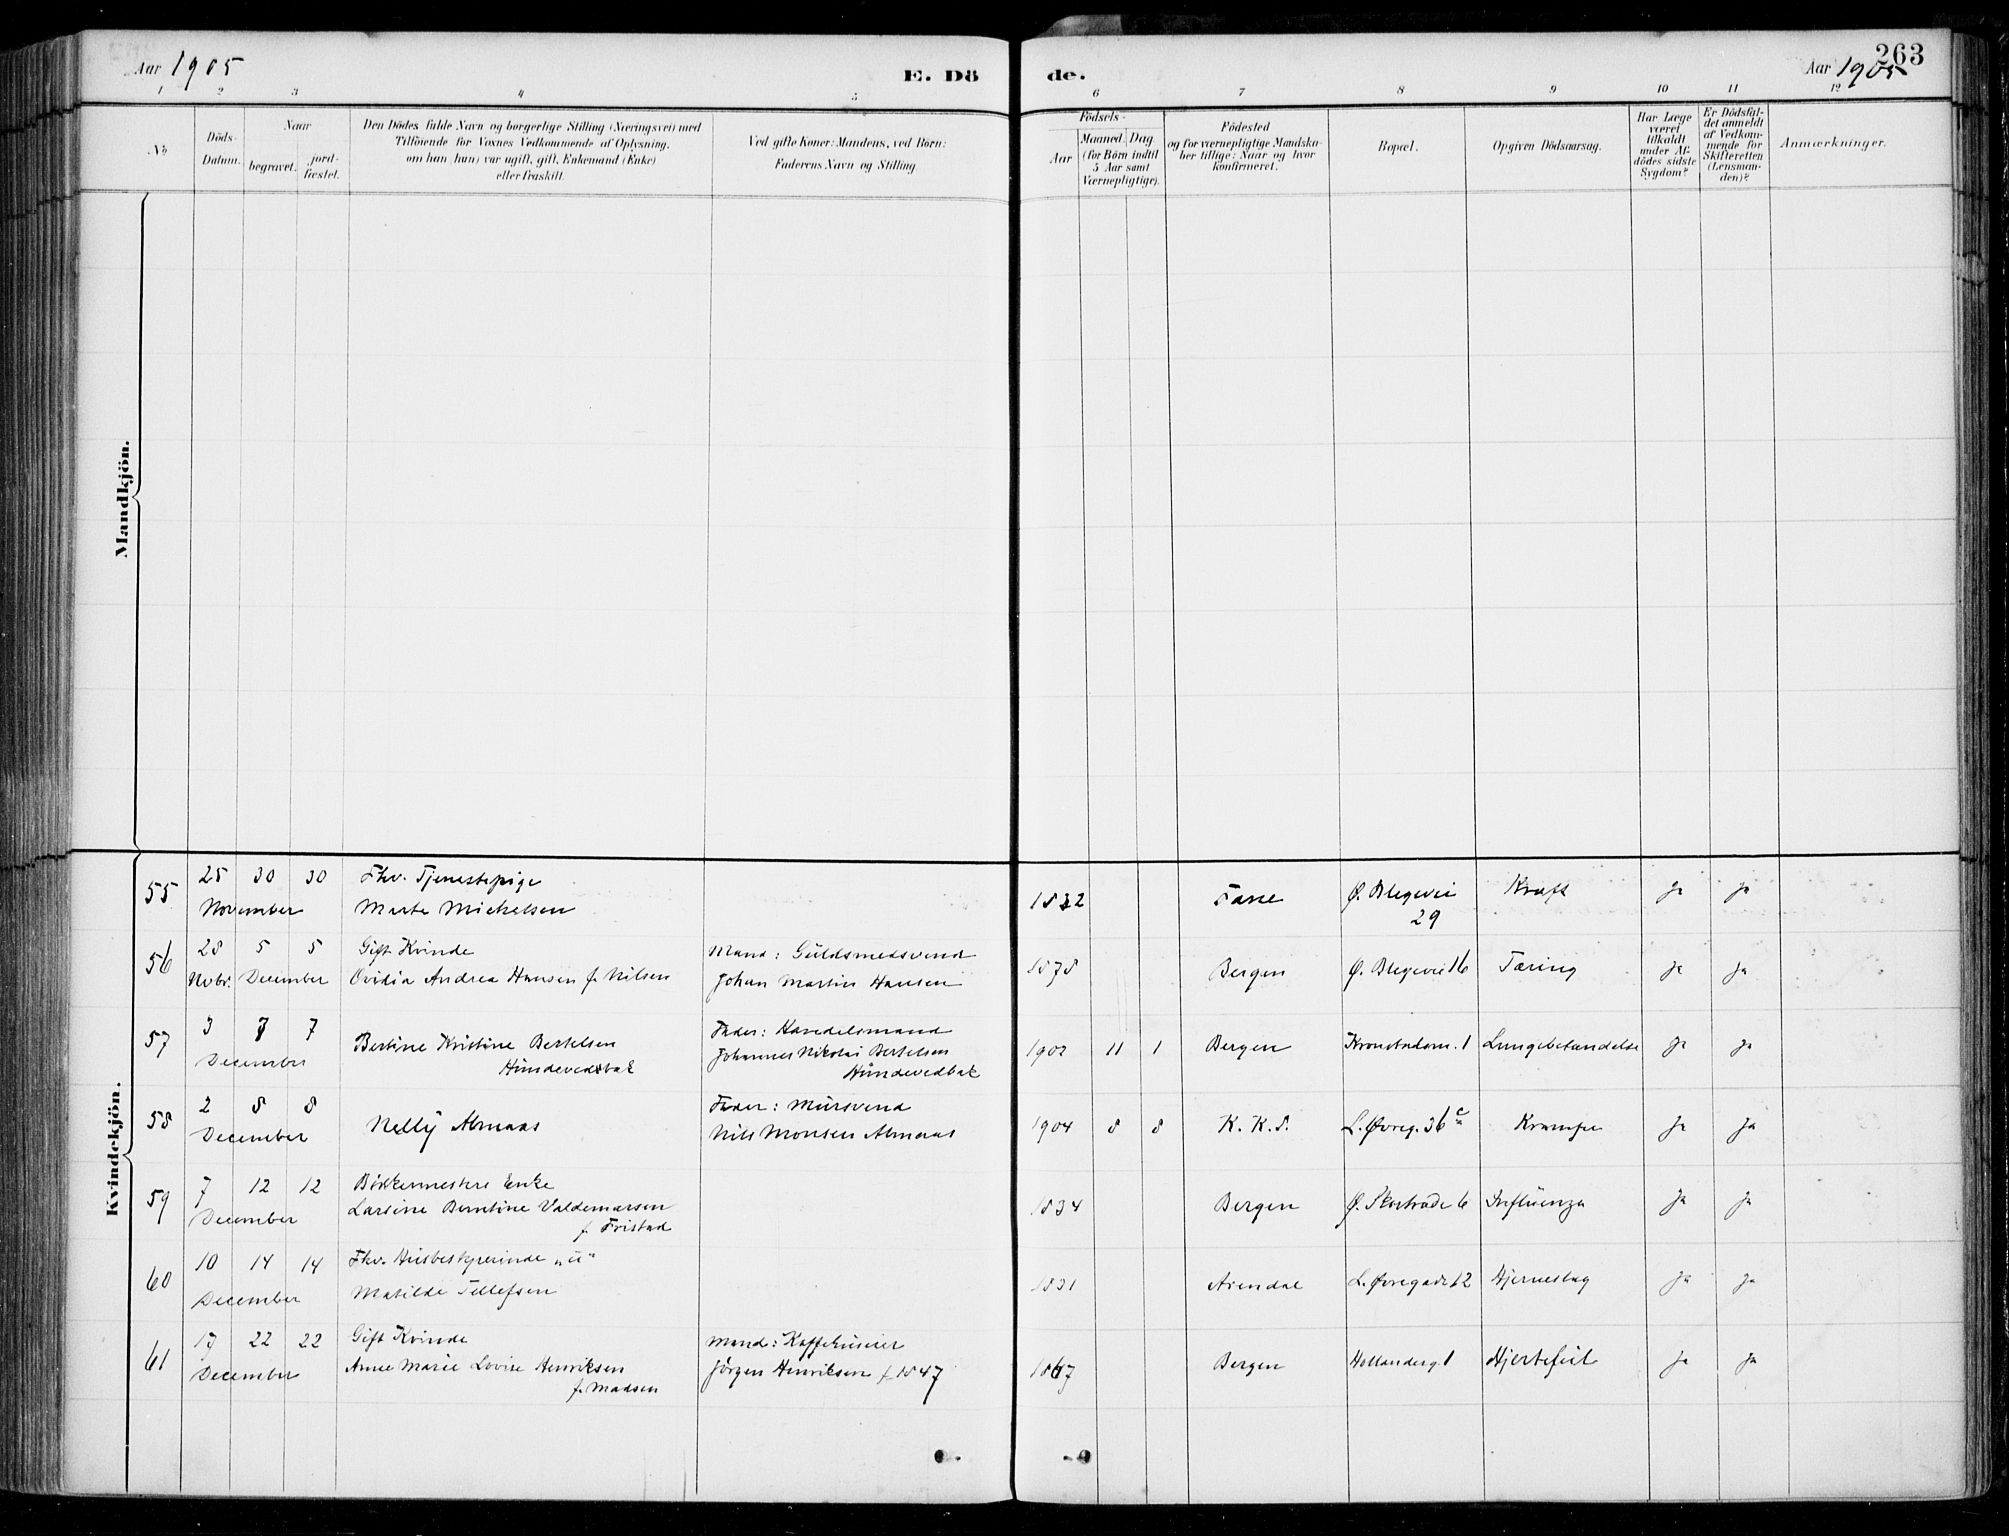 Aar 1905
E. Dö
de.
Aar 1905
263
1 2 3 4 5 6 7 8 9 10 11 12
No
Döds-
Datum.
Naar
begravet.
jord-
fæstet.
Den Dödes fulde Navn og borgerlige Stilling (Næringsvei) med
Tilföiende for Voxnes Vedkommende af Oplysning,
om han (hun) var ugift, gift, Enkemand (Enke)
eller fraskilt.
Ved gifte Koner: Mandens, ved Börn:
Faderens Navn og Stilling.
Födsels-
Aar
Maaned. Dag
(for Börn indtil
5 Aar samt
Værnepligtige).
Födested
og for værnepligtige Mandska-
ber tillige: Naar og hvor
konfirmeret.
Bopæl.
Opgiven Dödsaarsag.
Har Læge
været
tilkaldt
under Af-
dödes sidste
Sygdom?
Er Dödsfal-
det anmeldt
af Vedkom-
mende for
Skifteretten
(Lensman-
den)?
Anmærkninger.
Mandkjön.
Kvindekjön.
55 25 30 30 November
Fhv. Tjenestepige
Marte Mickelsen
1832 Fane Ø. Blegevei 29 Kræft ja ja
56 28 5 5 Novbr. December
Gift Kvinde
Ovidia Andrea Hansen f. Nilsen
Mand: Guldsmedsvend
Johan Martin Hansen
1878 Bergen Ø. Blegevei 16 Tæring ja ja
57 3 7 7 December
Bertine Kristine Bertelsen
Hundevedbak
Fader: Handelsmand
Johannes Nikolai Bertelsen
Hundevedbak
1902 11 1 Bergen Kronstadsm. 1 Lungebetændelse ja ja
58 2 8 8 December
Nelly Almaas
Fader: Mursvend
Nils Monsen Almaas
1904 8 8 K. K. S. L. Øvreg. 36 c Krampe ja ja
59 7 12 12 December
Bökkermesters Enke
Larsine Berntine Valdemarsen
f. Fristad
1834 Bergen Ø. Skostræde 6 Influenza ja ja
60 10 14 14 December
Fhv. Husbestyrerinde „u“
Matilde Tellefsen
1831 Arendal L. Øvregade 12 Hjerneslag ja ja
61 17 22 22 December
Gift Kvinde
Anne Marie Lovise Henriksen
f. Madsen
Mand: Kaffehuseier
Jörgen Henriksen f. 1847
1867 Bergen Hollenderg. 1 Hjertefeil ja ja